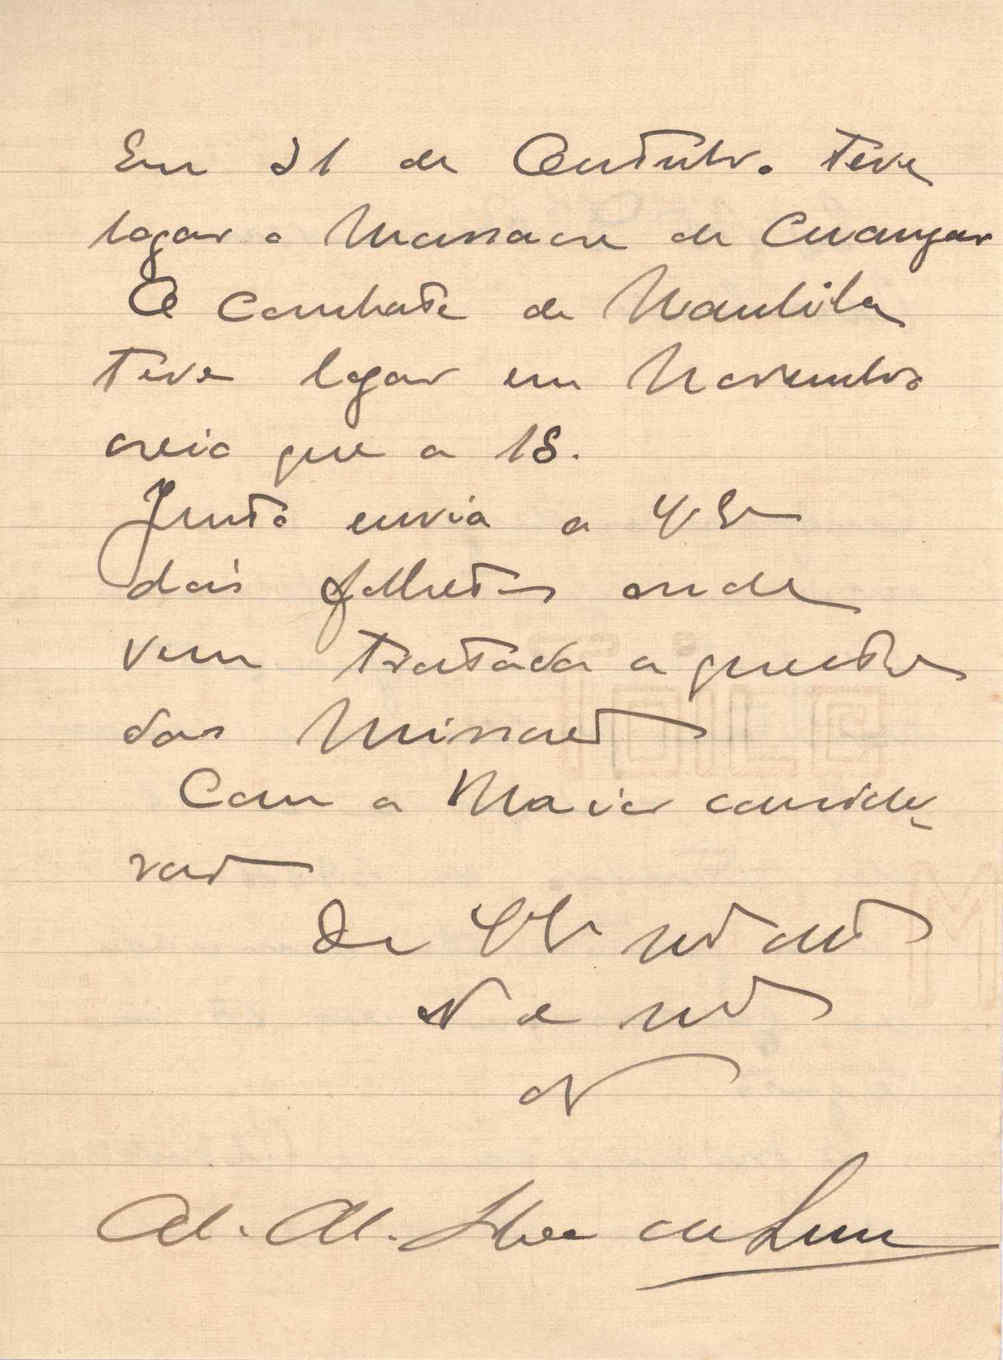 Em 31 de Outubro. Teve
logar o Massacre de Cuangar
O Combate de Naulila
teve logar em Novembro
creio que a 18.
Junto envio a V. Exª
dois folhetos onde
vem tratada a questão
das Missões
Com a Maior conside-
ração
De V. Exª